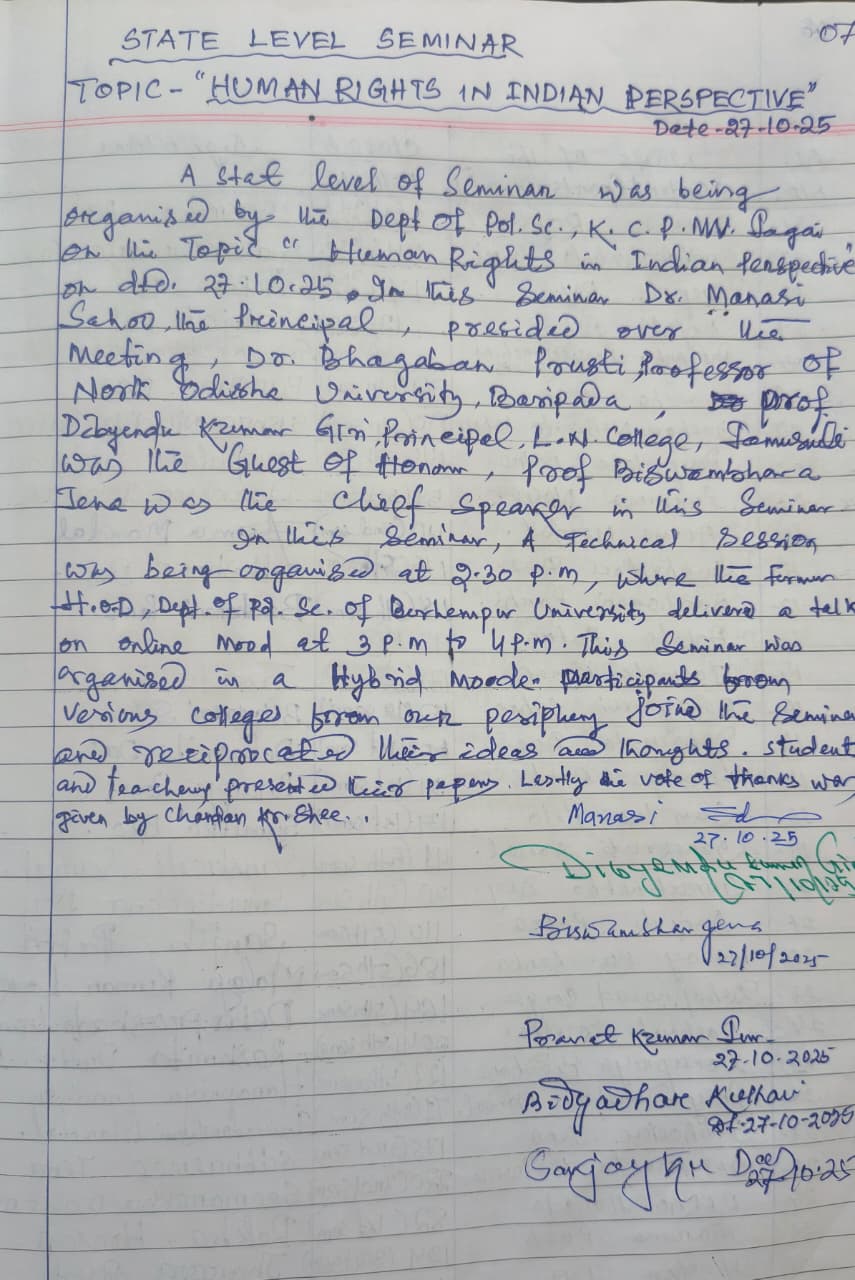 07
STATE LEVEL SEMINAR
TOPIC - "HUMAN RIGHTS IN INDIAN PERSPECTIVE"
Date-27-10-25
A Stat level of Seminar was being
organised by the Dept of Pol. Sc., K. C. P. MV.
on the Topic "Human Rights in Indian Perspective"
on dtd. 27.10.25. In this Seminar Dr. Manasi
Sahoo, the Principal, presided over the
Meeting, Dr. Bhagaban Prusti, Professor of
North Odisha University, Baripada, prof
Dibyendu Kumar Giri, Principal, L.N. College,
was the Guest of Honour, Prof Biswambhara
Jena was the Chief Speaker in this Seminar
In this Seminar, A Technical Session
was being organised at 2.30 p.m, where the former
H.O.D, Dept. of Pol. Sc. of Berhempur University delivered a talk
on online Mood at 3 P.M to 4 P.M. This Seminar was
organised in a Hybrid Moode. Participants from
Verious colleges from our periphery joined the Semina
and reciprocated their ideas and thoughts. student
and teachers presented their papers. Lastly the vote of thanks was
given by Chandan Kr. Shee...
Manasi
27.10.25
Dibyendu Kumar Giri
27/10/25
Biswambhar Jena
27/10/2025
Pranat Kumar
27.10.2025
Bidyadhar
dt-27-10-2025
Sanjay Ku Das
27.10.25